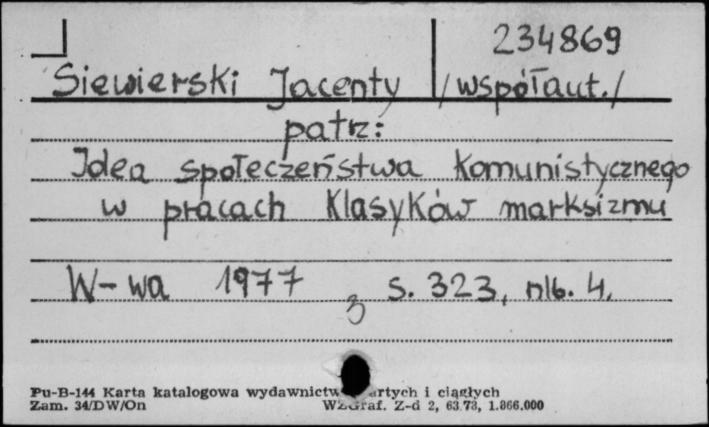 234869
Siewierski Jacenty /współaut./
patrz:
Idea społeczeństwa komunistycznego
w pracach klasyków marksizmu
W-wa 1977 s. 323, nlb. 4.
3
Pu-B-144 Karta katalogowa wydawnictw zwartych i ciągłych
Zam. 34/DW/On WZGraf. Z-d 2, 63.73, 1.866.000